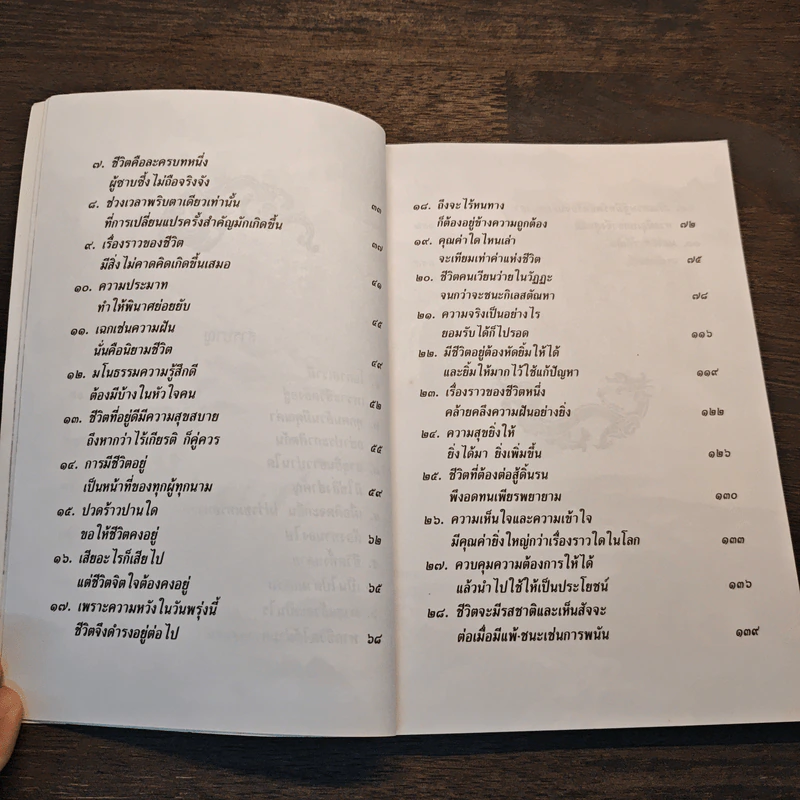 ๗. ชีวิตคือละครบทหนึ่ง
ผู้ซาบซึ้งไม่ถือจริงจัง ๓๓
๘. ช่วงเวลาพริบตาเดียวเท่านั้น
ที่การเปลี่ยนแปรครั้งสำคัญมักเกิดขึ้น ๓๗
๙. เรื่องราวของชีวิต
มีสิ่งไม่คาดคิดเกิดขึ้นเสมอ ๔๑
๑๐. ความประมาท
ทำให้พินาศย่อยยับ ๔๕
๑๑. เฉกเช่นความฝัน
นั่นคือนิยามชีวิต ๔๙
๑๒. มโนธรรมความรู้สึกดี
ต้องมีบ้างในหัวใจคน ๕๒
๑๓. ชีวิตที่อยู่ดีมีความสุขสบาย
ถึงหากว่าไร้เกียรติ ก็คู่ควร ๕๕
๑๔. การมีชีวิตอยู่
เป็นหน้าที่ของทุกผู้ทุกนาม ๕๙
๑๕. ปวดร้าวปานใด
ขอให้ชีวิตคงอยู่ ๖๒
๑๖. เสียอะไรก็เสียไป
แต่ชีวิตจิตใจต้องคงอยู่ ๖๕
๑๗. เพราะความหวังในวันพรุ่งนี้
ชีวิตจึงดำรงอยู่ต่อไป ๖๘
๑๘. ถึงจะไร้หนทาง
ก็ต้องอยู่ข้างความถูกต้อง ๗๒
๑๙. คุณค่าใดไหนเล่า
จะเทียมเท่าค่าแห่งชีวิต ๗๕
๒๐. ชีวิตคนเวียนว่ายในวัฏฏะ
จนกว่าจะชนะกิเลสตัณหา ๗๘
๒๑. ความจริงเป็นอย่างไร
ยอมรับได้ก็ไปรอด ๑๑๖
๒๒. มีชีวิตอยู่ต้องหัดยิ้มให้ได้
และยิ้มให้มากไว้ใช้แก้ปัญหา ๑๑๙
๒๓. เรื่องราวของชีวิตหนึ่ง
คล้ายคลึงความฝันอย่างยิ่ง ๑๒๒
๒๔. ความสุขยิ่งให้
ยิ่งได้มา ยิ่งเพิ่มขึ้น ๑๒๖
๒๕. ชีวิตที่ต้องต่อสู้ดิ้นรน
พึงอดทนเพียรพยายาม ๑๓๐
๒๖. ความเห็นใจและความเข้าใจ
มีคุณค่ายิ่งใหญ่กว่าเรื่องราวใดในโลก ๑๓๓
๒๗. ควบคุมความต้องการให้ได้
แล้วนำไปใช้ให้เป็นประโยชน์ ๑๓๖
๒๘. ชีวิตจะมีรสชาติและเห็นสัจจะ
ต่อเมื่อมีแพ้-ชนะเช่นการพนัน ๑๓๙